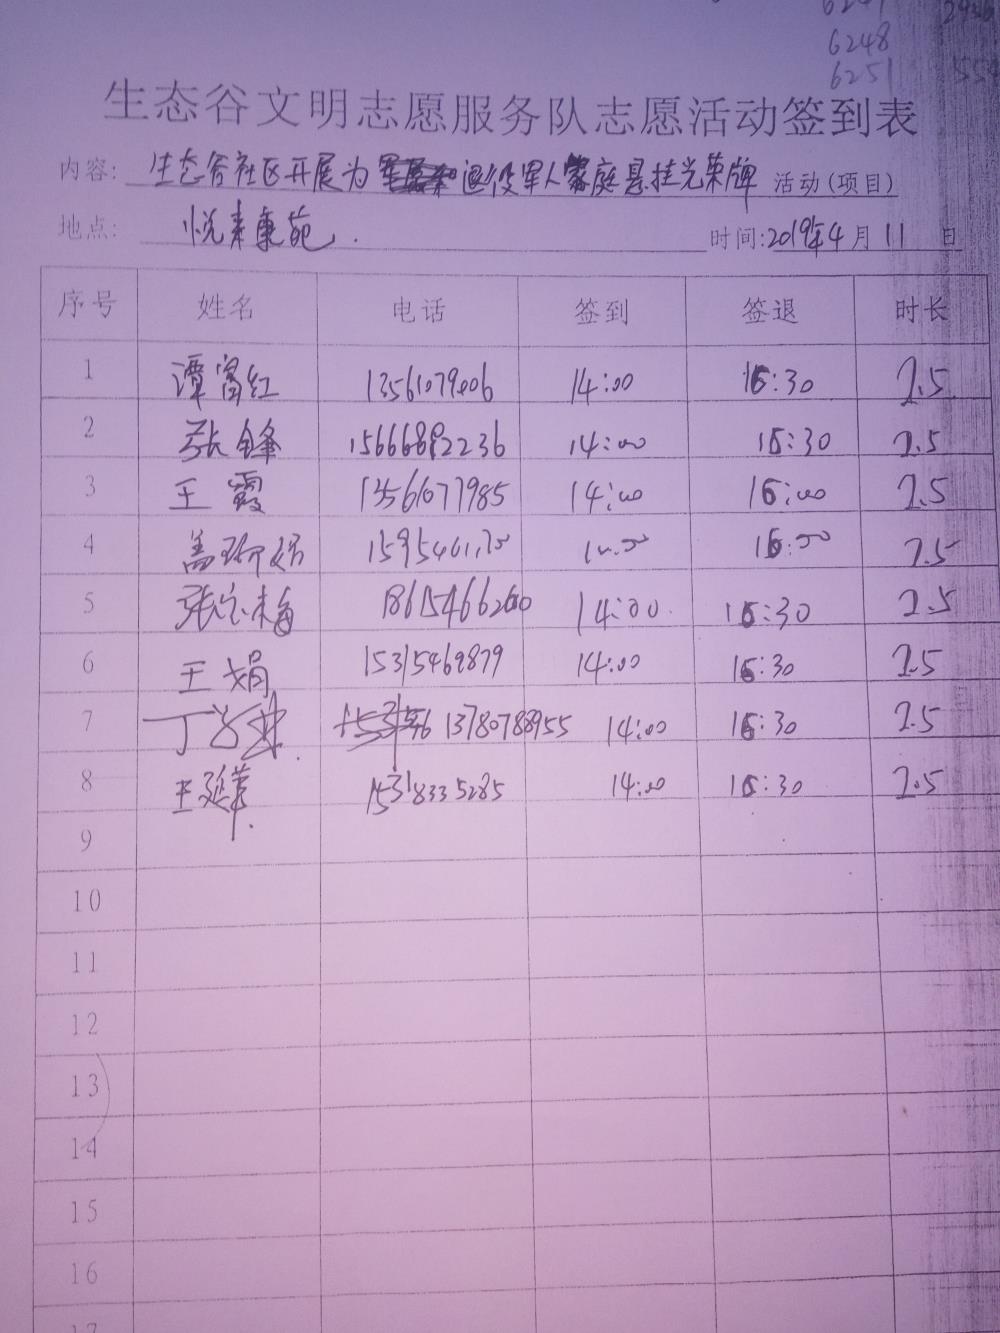 6248
6251
生态谷文明志愿服务队志愿活动签到表
内容: 生态谷社区开展为退役军人家庭悬挂光荣牌 活动(项目)
地点: 悦来康苑. 时间:2019年4月11日
序号 姓名 电话 签到 签退 时长
1 谭富红 13561079006 14:00 16:30 2.5
2 张锋 15666892236 14:00 16:30 2.5
3 王霞 13561077985 14:00 16:00 2.5
4 16:00 2.5
5 张宝梅 14:00 16:30 2.5
6 王娟 15315469879 14:00 16:30 2.5
7 13780788955 14:00 16:30 2.5
8 王延苹 15318335285 14:00 16:30 2.5
9
10
11
12
13
14
15
16
17